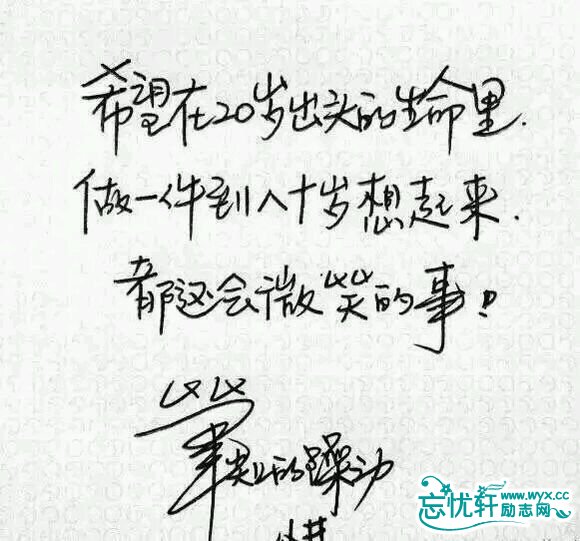 希望在20岁出头的生命里.
做一件到八十岁想起来.
都还会微笑的事!
笔尖上的躁动
忘忧轩 www.wyx.cc
励志网